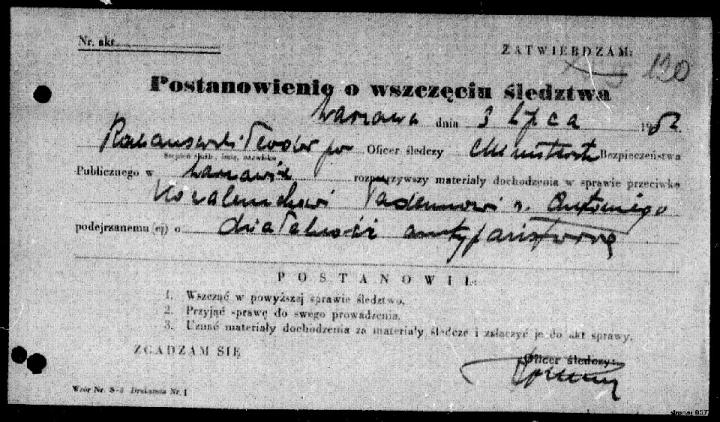 Nr. akt
ZATWIERDZAM:
190
Postanowienie o wszczęciu śledztwa
Warszawa dnia 3 lipca 1952
Oficer śledczy Bezpieczeństwa
Stopień służb., imię, nazwisko
Publicznego w rozpatrzywszy materiały dochodzenia w sprawie przeciwko
Tadeuszowi s. Antoniego
podejrzanemu (ej) o działalność antypaństwową
POSTANOWIŁ:
1. Wszcząć w powyższej sprawie śledztwo.
2. Przyjąć sprawę do swego prowadzenia.
3. Uznać materiały dochodzenia za materiały śledcze i załączyć je do akt sprawy.
ZGADZAM SIĘ
Oficer śledczy:
Wzór Nr. S-3 Drukarnia Nr. 1